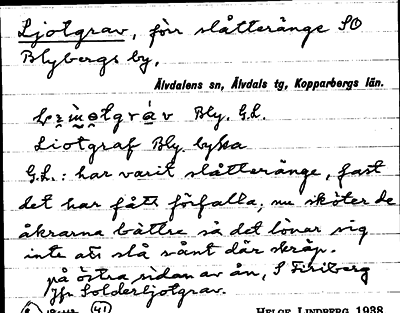 Ljotgrav, förr slåtteränge SO
Blybergs by.
Älvdalens sn, Älvdals tg, Kopparbergs län.
Bly. G.L.
Liotgraf Bly. byka
G.L.: har varit slåtteränge, fast
det har fått förfalla; nu sköter de
åkrarna bättre så det lönar sig
inte att slå sånt där skräp.
på östra sidan av ån, S Firiberg
Jfr Solderljotgrav.
41
HELGE LINDBERG 1938